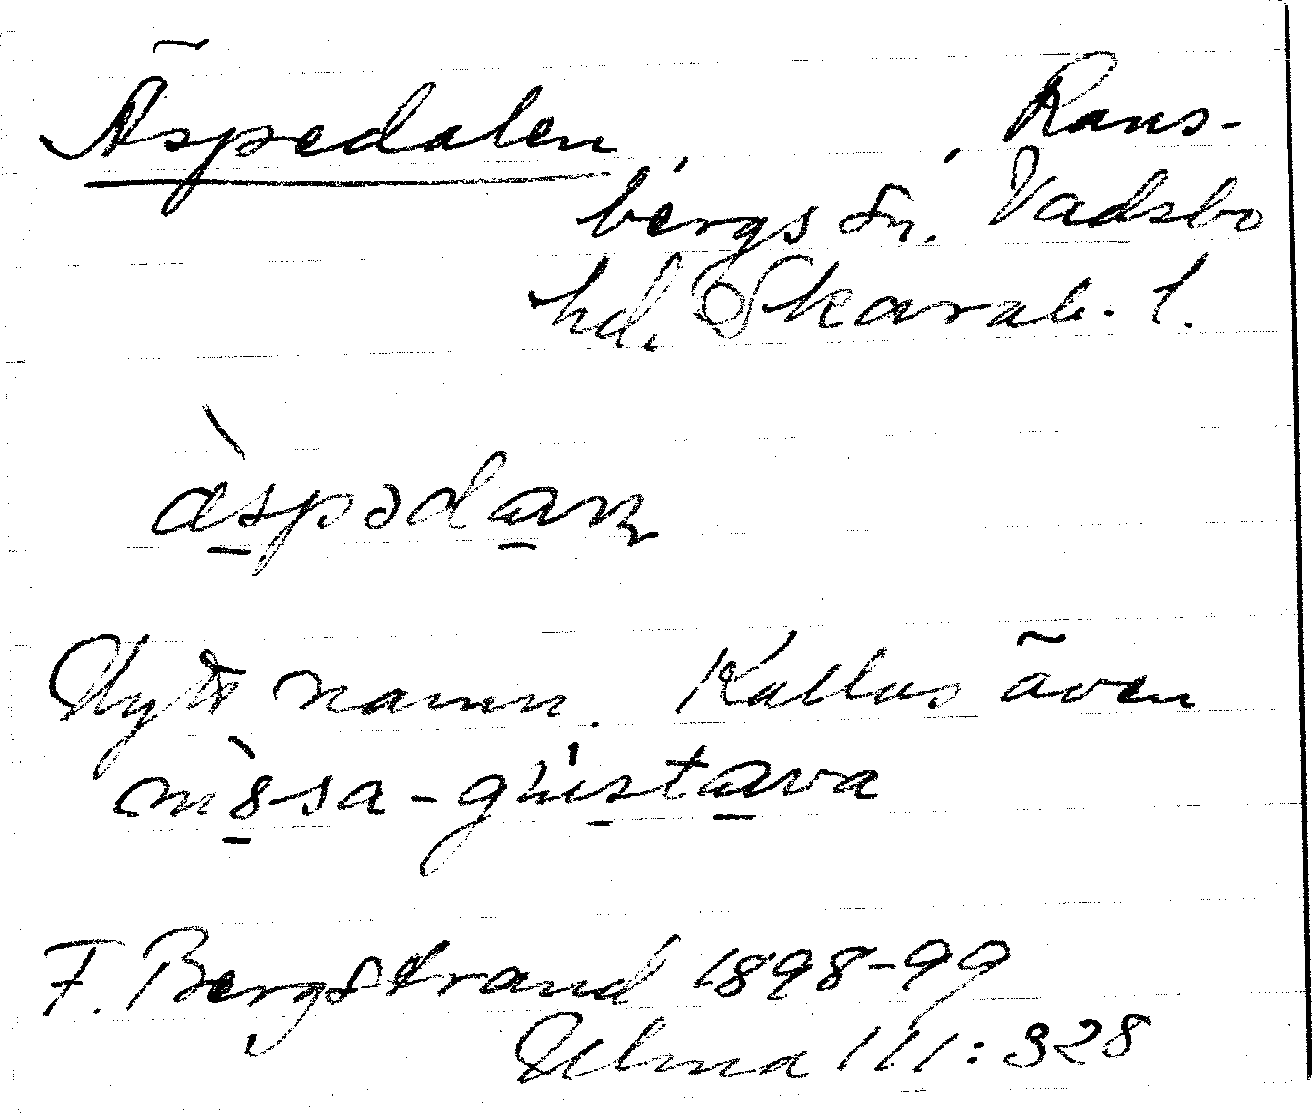 Äspedalen, , Rans-
bergs sn. Vadsbo
hd. Skarab. l.
àspədaɳ
Nytt namn. Kallas även
nìssa-gústava
F. Bergstrand 1898-99
Ulma 111:328